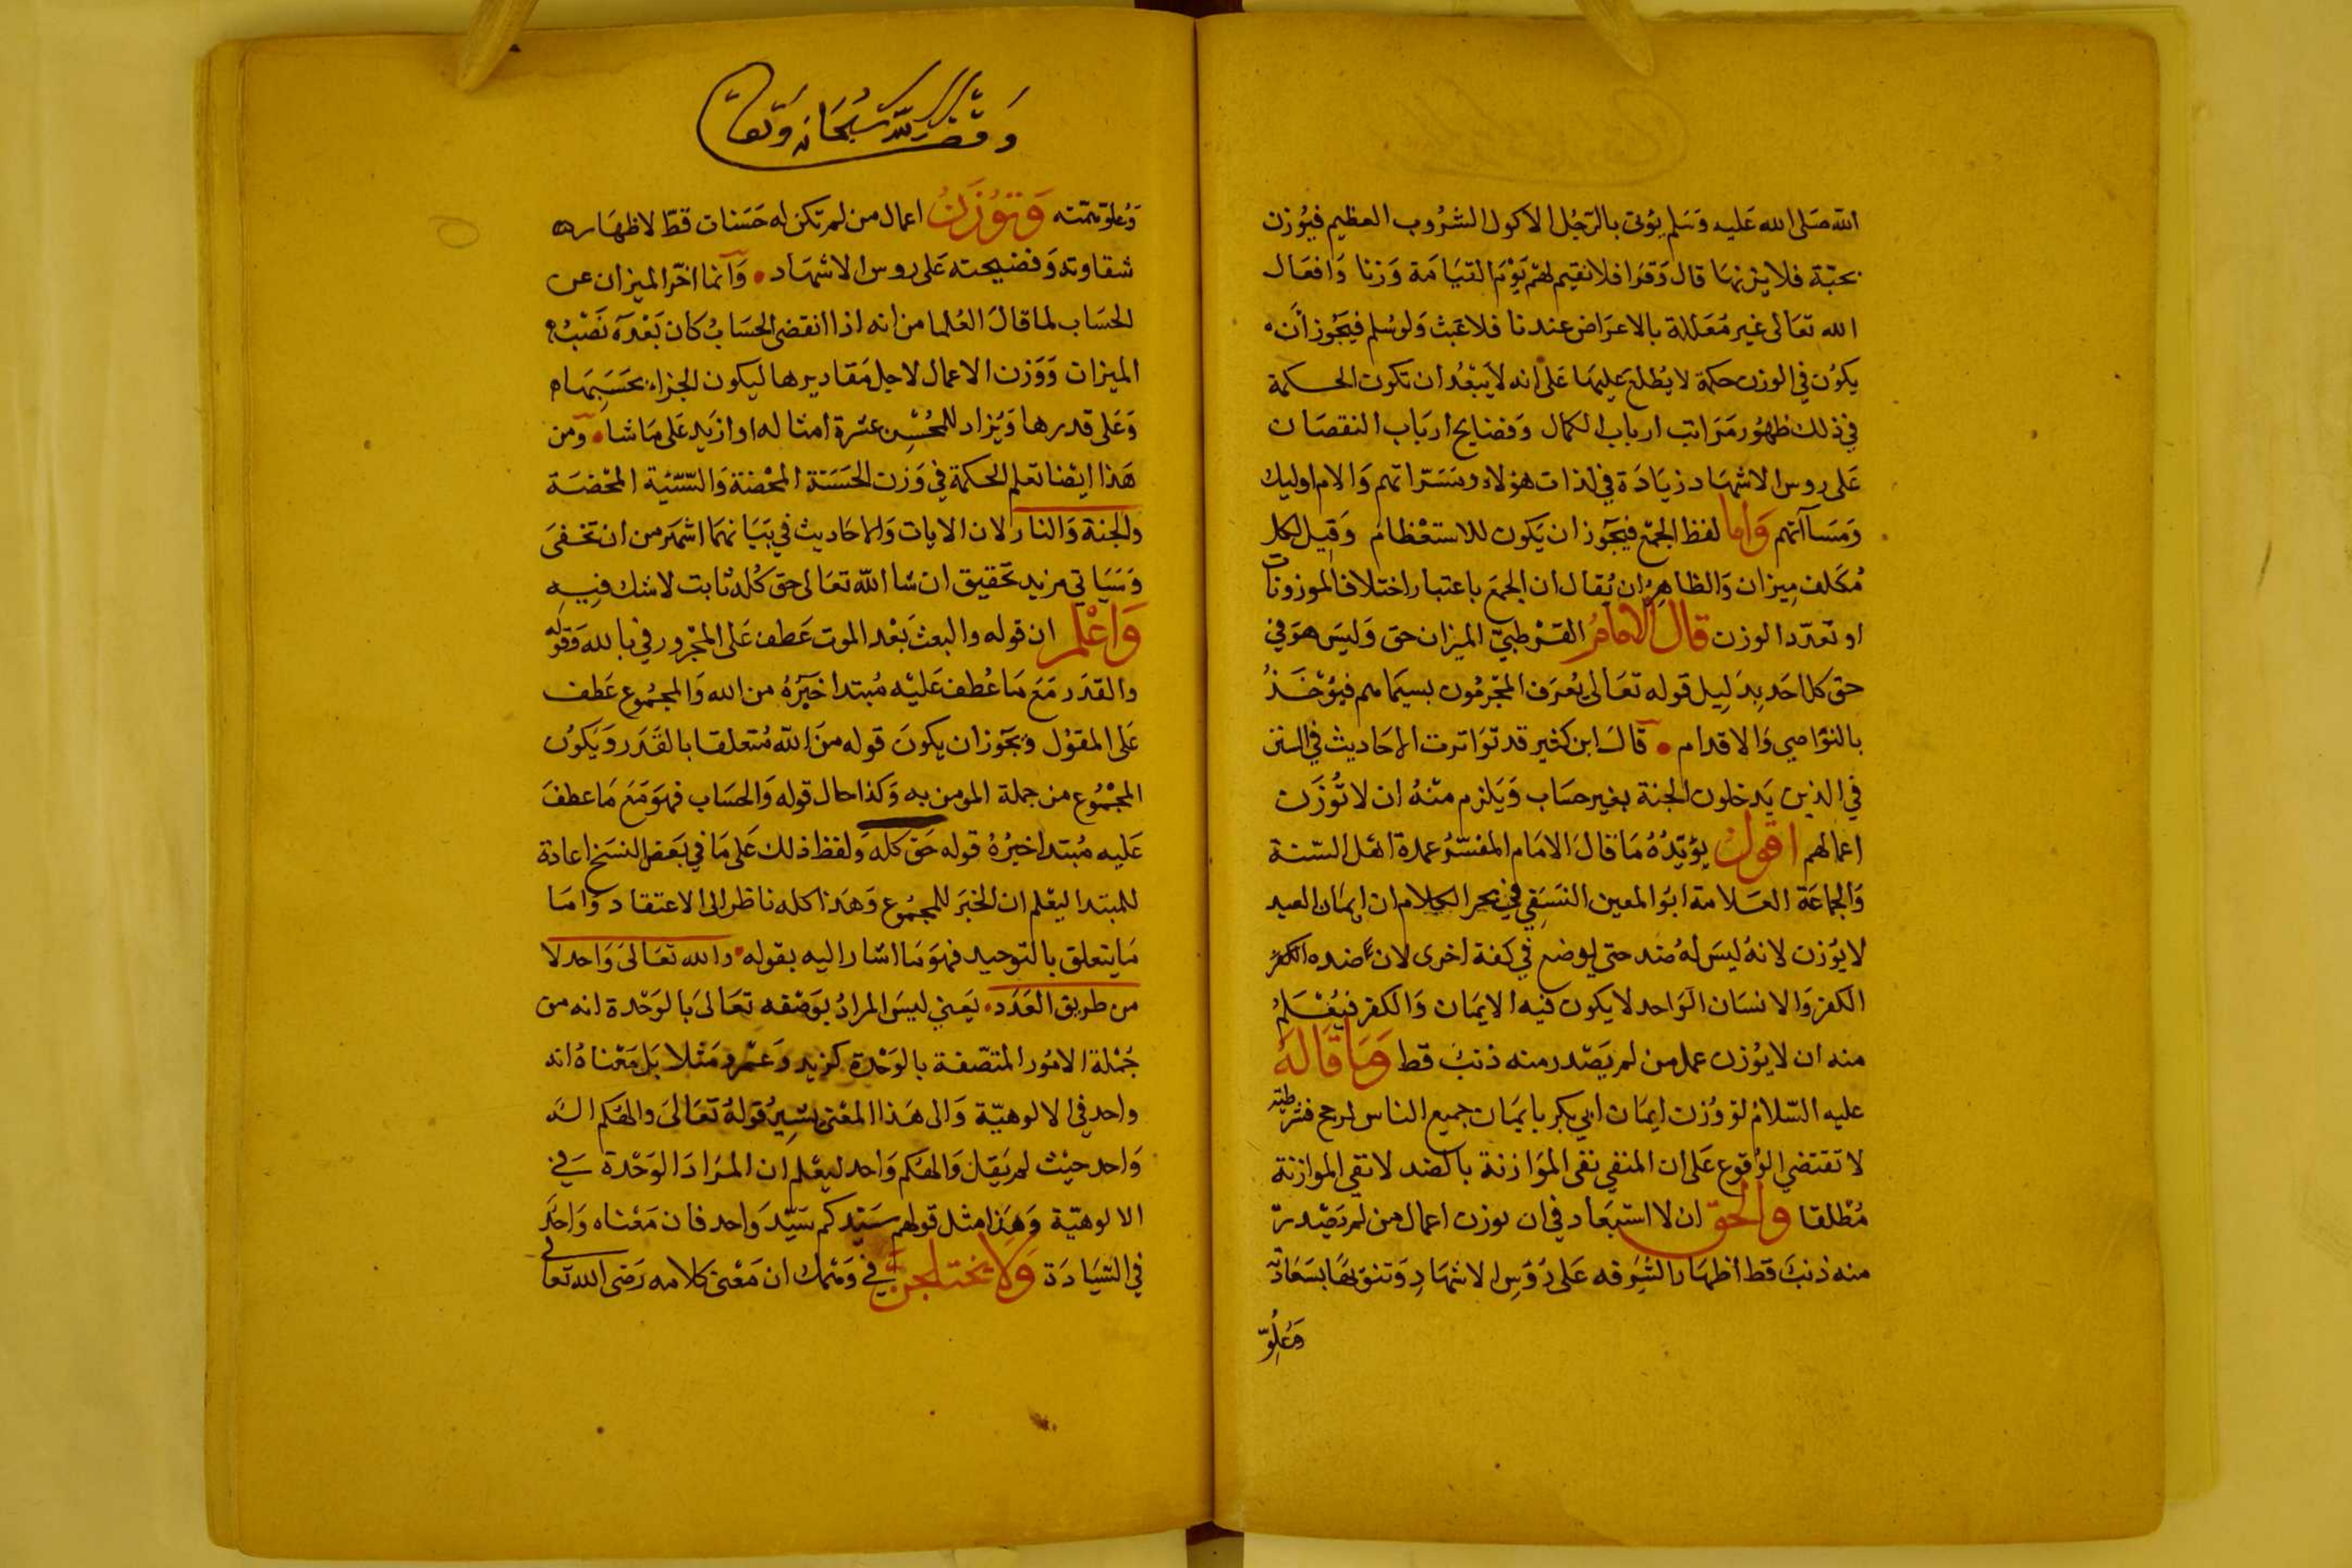 الله صلى الله عليه وسلم يؤتى بالرجل الاكول الشروب العظيم فيوزن
بحبّة فلا يزنها قال وقرا فلا نقيم لهم يوم القيامة وزنا وافعال
الله تعالى غير معللة بالاعراض عندنا فلا عبث ولو سُلم فيجوز ان
يكون في الوزن حكمة لا يُطلع عليها على انه لا يبعُد ان تكون الحكمة
في ذلك ظهور مراتب ارباب الكمال وفضايح ارباب النقصان
على روس الاشهاد زيادة في لذات هولاء ومسرّاتهم والام اوليك
ومساآتهم واما لفظ الجمع فيجوز ان يكون للاستعظام وقيل لكل
مُكلف ميزان والظاهر ان يُقال ان الجمع باعتبار اختلاف الموزونات
او تعدد الوزن قال الامام القرطبي الميزان حق وليس هو في
حق كل احد بدليل قوله تعالى يُعرف المجرمُون بسيماهم فيُؤخذ
بالنواصي والاقدام قال ابن كثير قد تواترت الاحاديث في السنن
في الذين يدخلون الجنة بغير حساب ويلزم منه ان لا تُوزن
اعمالهم اقول يؤيّدُهُ ما قال الامام المفسّر عمدة اهل السنة
والجماعة العلامة ابو المعين النسفي في بحر الكلام ان ايمان العبد
لا يُوزن لانهُ ليس لهُ ضد حتى يوضع في كفة اخرى لان ضده الكفر
الكفر والانسان الواحد لا يكون فيه الايمان والكفر فيُعلم
منه ان لا يوزن عمل من لم يصدر منه ذنب قط وما قاله
عليه السلام لو وُزن ايمان ابي بكر بايمان جميع الناس لرجح فشرطيته
لا تقتضي الوُقوع على ان المنفي نفي الموازنة بالضد لا نفي الموازنة
مُطلقا والحق ان لا استبعاد في ان يوزن اعمال من لم يصدر
منه ذنب قط اظهارا لشرفه على رُؤسِ الاشهادِ وتنويها بسعادته
وعُلوّ
وقف لله سبحانه وتعالى
وعلو همّته وتُوزن اعمال من لم تكن له حسنات قطّ لاظهار
شقاوته وفضيحته على روس الاشهاد وانما اخّر الميزان عن
الحساب لما قال العُلما من انه اذا انقضى الحسابُ كان بعده نصبُ
الميزان ووزن الاعمال لاجل مقاديرها ليكون الجزاء بحسبها
وعلى قدرها ويُزاد للمُحسن عشرة امثاله او ازيد على ما شا ومن
هذا ايضا تعلم الحكمة في وزن الحسنة المحضة والسّيّئة المحضة
والجنة والنار لان الايات والاحاديث في بيانهما اشهر من ان تخفى
وسياتي مزيد تحقيق ان شا الله تعالى حق كُله ثابت لا شك فيه
واعلم ان قوله والبعث بعد الموت عطف على المجرور في بالله وقوله
والقدر مع ما عُطف عليه مُبتدا خبرُهُ من الله والمجمُوع عطف
على المقول ويجوز ان يكون قوله من الله مُتعلقا بالقدر ويكون
المجمُوع من جملة المومن به وكذا حال قوله والحساب فهو مع ما عطف
عليه مُبتدا خبرُهُ قوله حق كله ولفظ ذلك على ما في بعض النسخ اعادة
للمبتدا ليُعلم ان الخبر للمجمُوع وهذا كله ناظر الى الاعتقاد واما
ما يتعلق بالتوحيد فهو ما اشار اليه بقوله والله تعالى واحد لا
من طريق العدد يعني ليس المرادُ بوصفه تعالى بالوحدة انه من
جُملة الامُور المتصّفة بالوحدة كزيد وعمرو مثلا بل معناهُ انه
واحد في الالوهيّة والى هذا المعنى يشيرُ قولهُ تعالى والهكم اله
واحد حيث لم يقل والهكم واحد ليعلم ان المراد الوحدة في
الالوهيّة وهذا مثل قولهم سيّدكم سيّد واحد فان معناه واحد
في السّيادة ولا يختلجنّ في وهمك ان معنى كلامه رضى الله تعالى